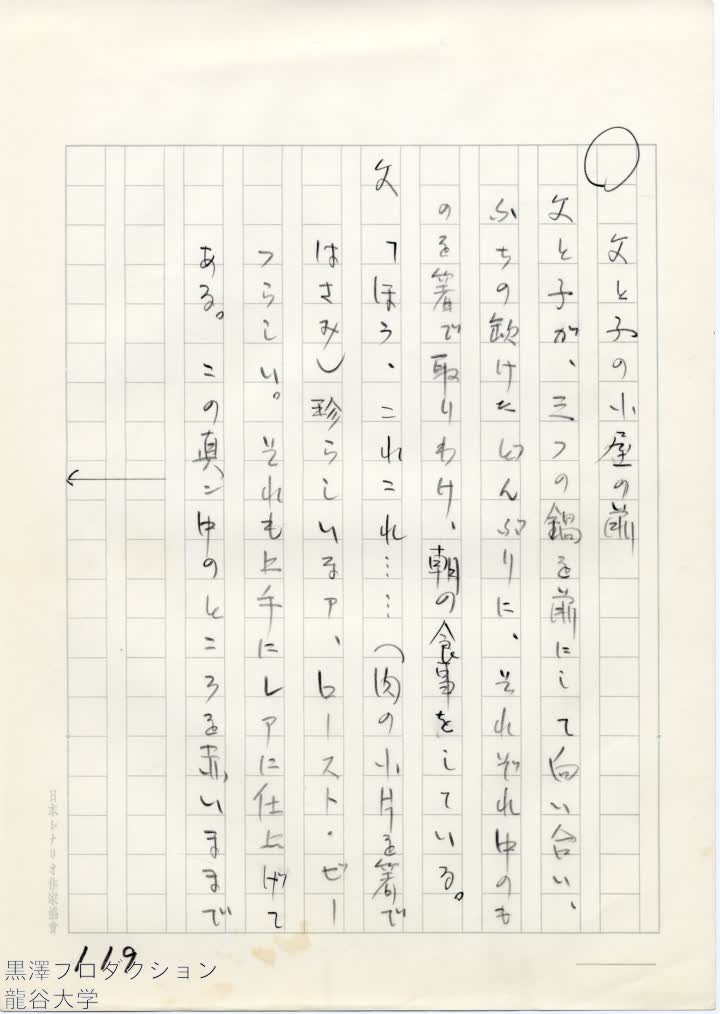 ○
父と子の小屋の前
父と子が、三つの鍋を前にして向い合い、
ふちの欠けたどんぶりに、それぞれ中のも
のを箸で取りわけ、朝の食事をしている。
父「ほう、これこれ……（肉の小片を箸で
はさみ）珍らしいまァ、ロースト・ビー
フらしい。それも上手にレアに仕上げて
ある。この真ン中のところを赤いままで
日本シナリオ作家協會
119
黒澤プロダクション
龍谷大学